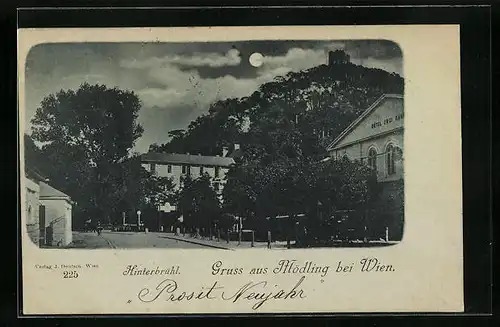 HOTEL
Verlag J. Deutsch, Wien
225
Hinterbrühl.
Gruss aus Mödling bei Wien.
"Prosit Neujahr"